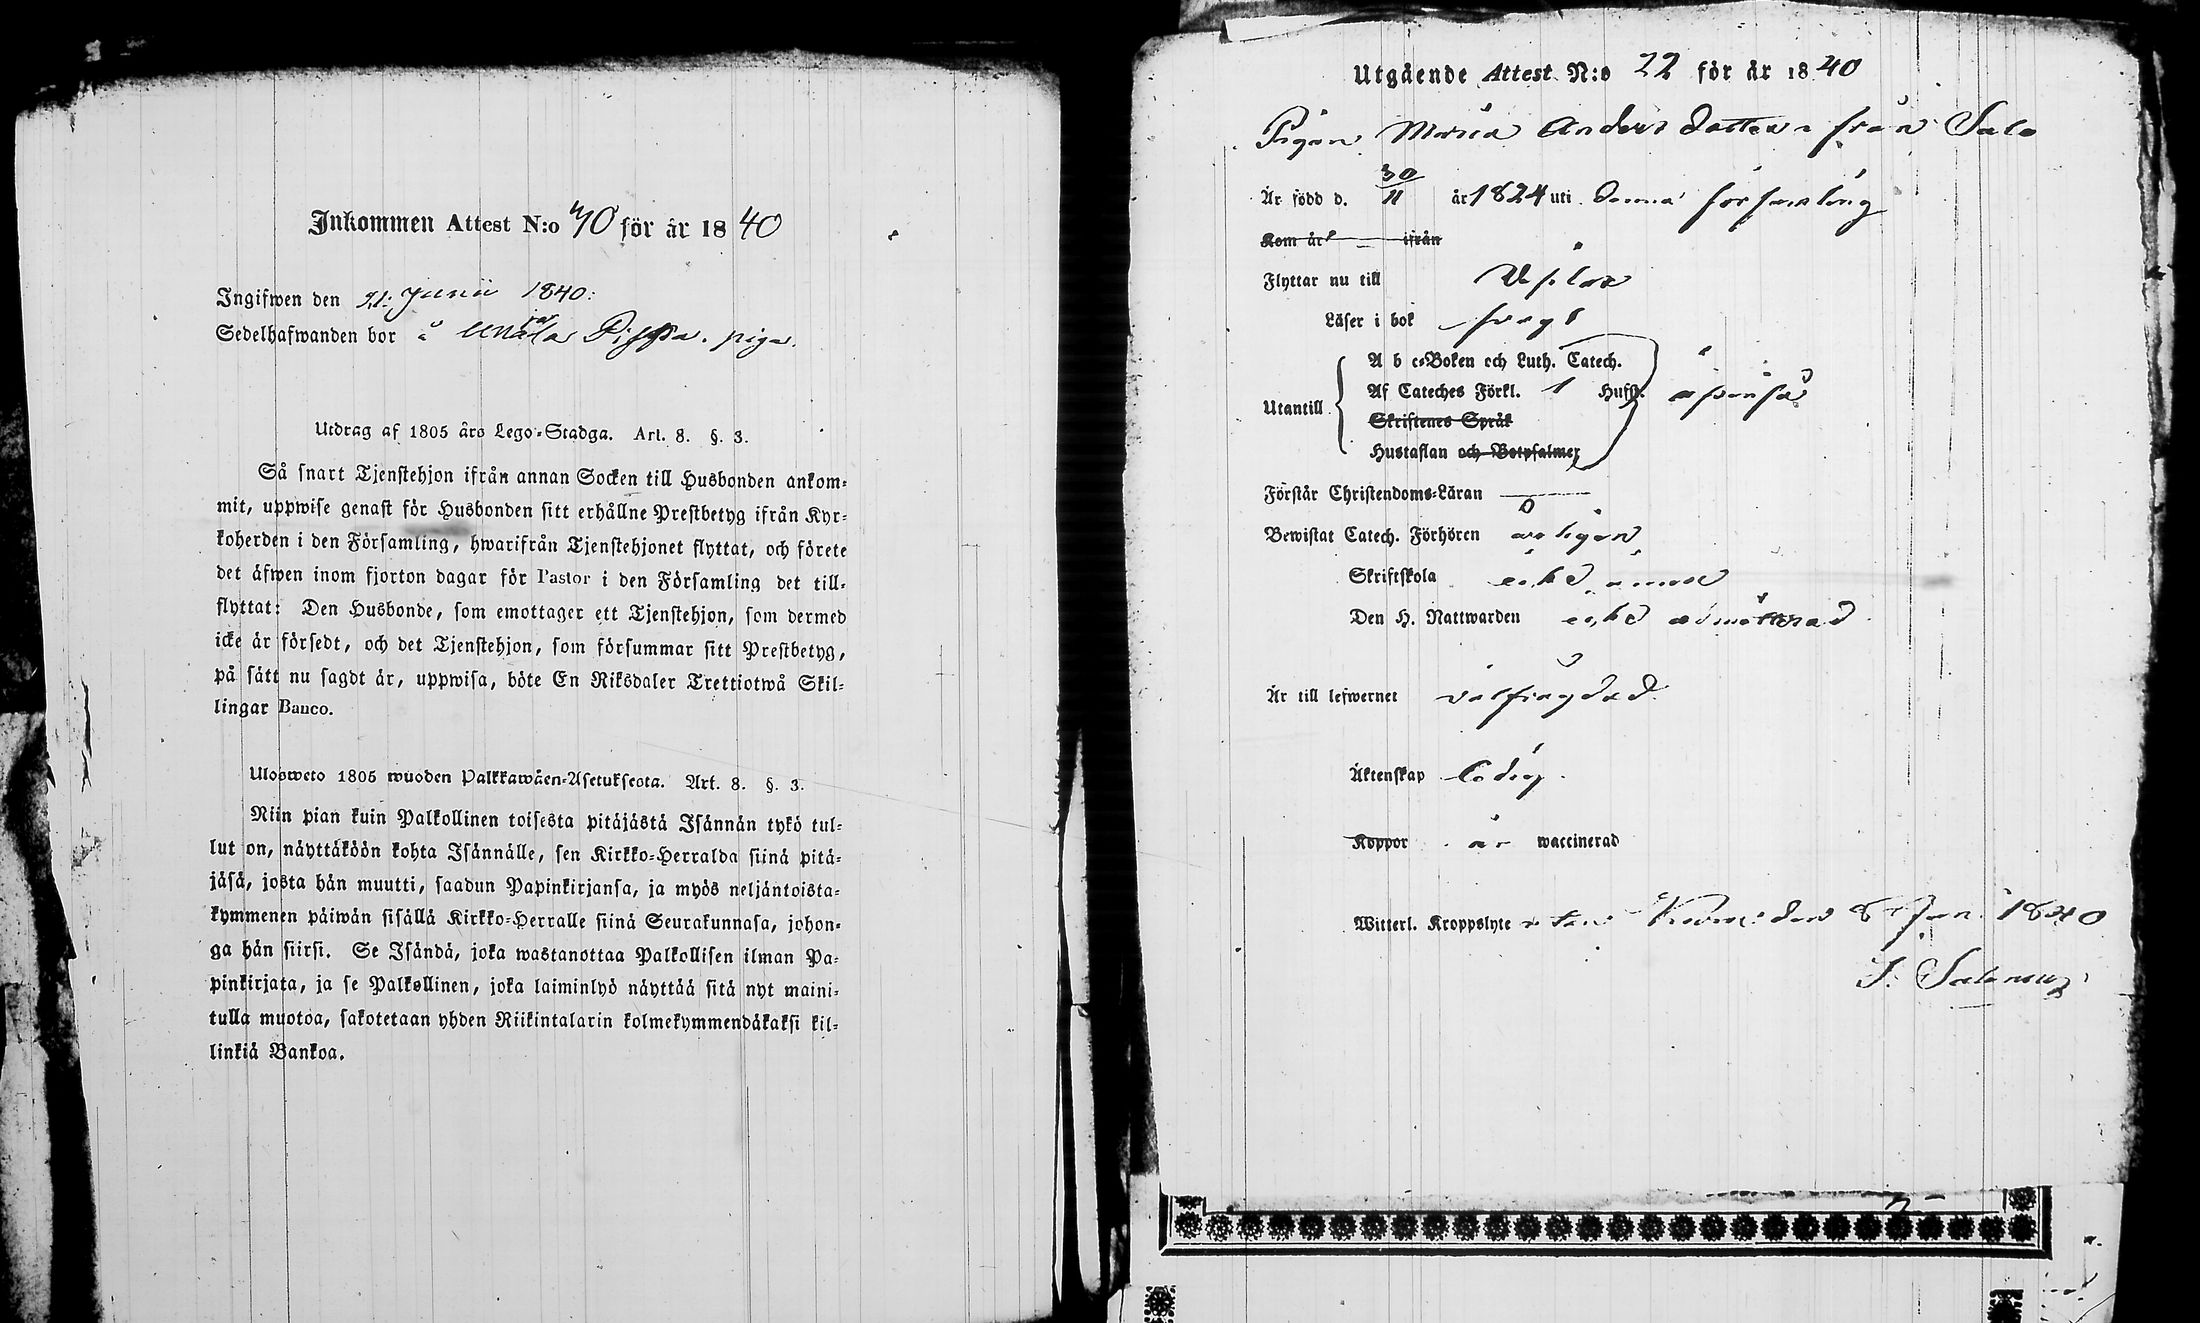 Inkommen Attest N:o 40 för år 1840
Ingifwen den 21. Junii 1840.
Sedelhafwanden bor å piga.
Utdrag af 1805 års Lego-Stadga. Art. 8. §. 3.
Så snart Tjenstehjon ifrån annan Socken till Husbonden ankom-
mit, uppwise genast för Husbonden sitt erhållne Prestbetyg ifrån Kyr-
koherden i den Församling, hwarifrån Tjenstehjonet flyttat, och förete
det äfwen inom fjorton dagar för Pastor i den Församling det till-
flyttat: Den Husbonde, som emottager ett Tjenstehjon, som dermed
icke är försedt, och det Tjenstehjon, som försummar sitt Prestbetyg,
på sätt nu sagdt är, uppwisa, böte En Riksdaler Trettiotwå Skil-
lingar Banco.
Ulosweto 1805 wuoden Palkkawäen-Asetuksesta. Art. 8. §. 3.
Niin pian kuin Palkollinen toisesta pitäjästä Isännän tykö tul-
lut on, näyttäköön kohta Isännälle, sen Kirkko-Herralda siinä pitä-
jäsä, josta hän muutti, saadun Papinkirjansa, ja myös neljäntoista-
kymmenen päiwän sisällä Kirkko-Herralle siinä Seurakunnasa, johon-
ga hän siirsi. Se Isändä, joka wastanottaa Palkollisen ilman Pa-
pinkirjata, ja se Palkollinen, joka laiminlyö näyttää sitä nyt maini-
tulla muotoa, sakotetaan yhden Riikintalarin kolmekymmendäkaksi kil-
linkiä Bankoa.
Utgående Attest N:o 22 för år 1840
Pigan Maria Anders dotter från Salo
Är född d. 30/11 år 1824 uti denna församling
Kom år ifrån
Flyttar nu till
Läser i bok svagt
A b c-Boken och Luth. Catech.
Utantill Af Cateches Förkl. 1 Hufst.
Skriftenes Språk
Hustaflan och Botpsalmer
Förstår Christendoms-Läran
Bewistat Catech. Förhören årligen
Skriftskola icke ännu
Den H. Nattwarden icke admitterad
Är till lefwernet välfrägdad
Äktenskap Ledig
Koppor är waccinerad
Witterl. Kroppslyte utan den 8 Jan. 1840